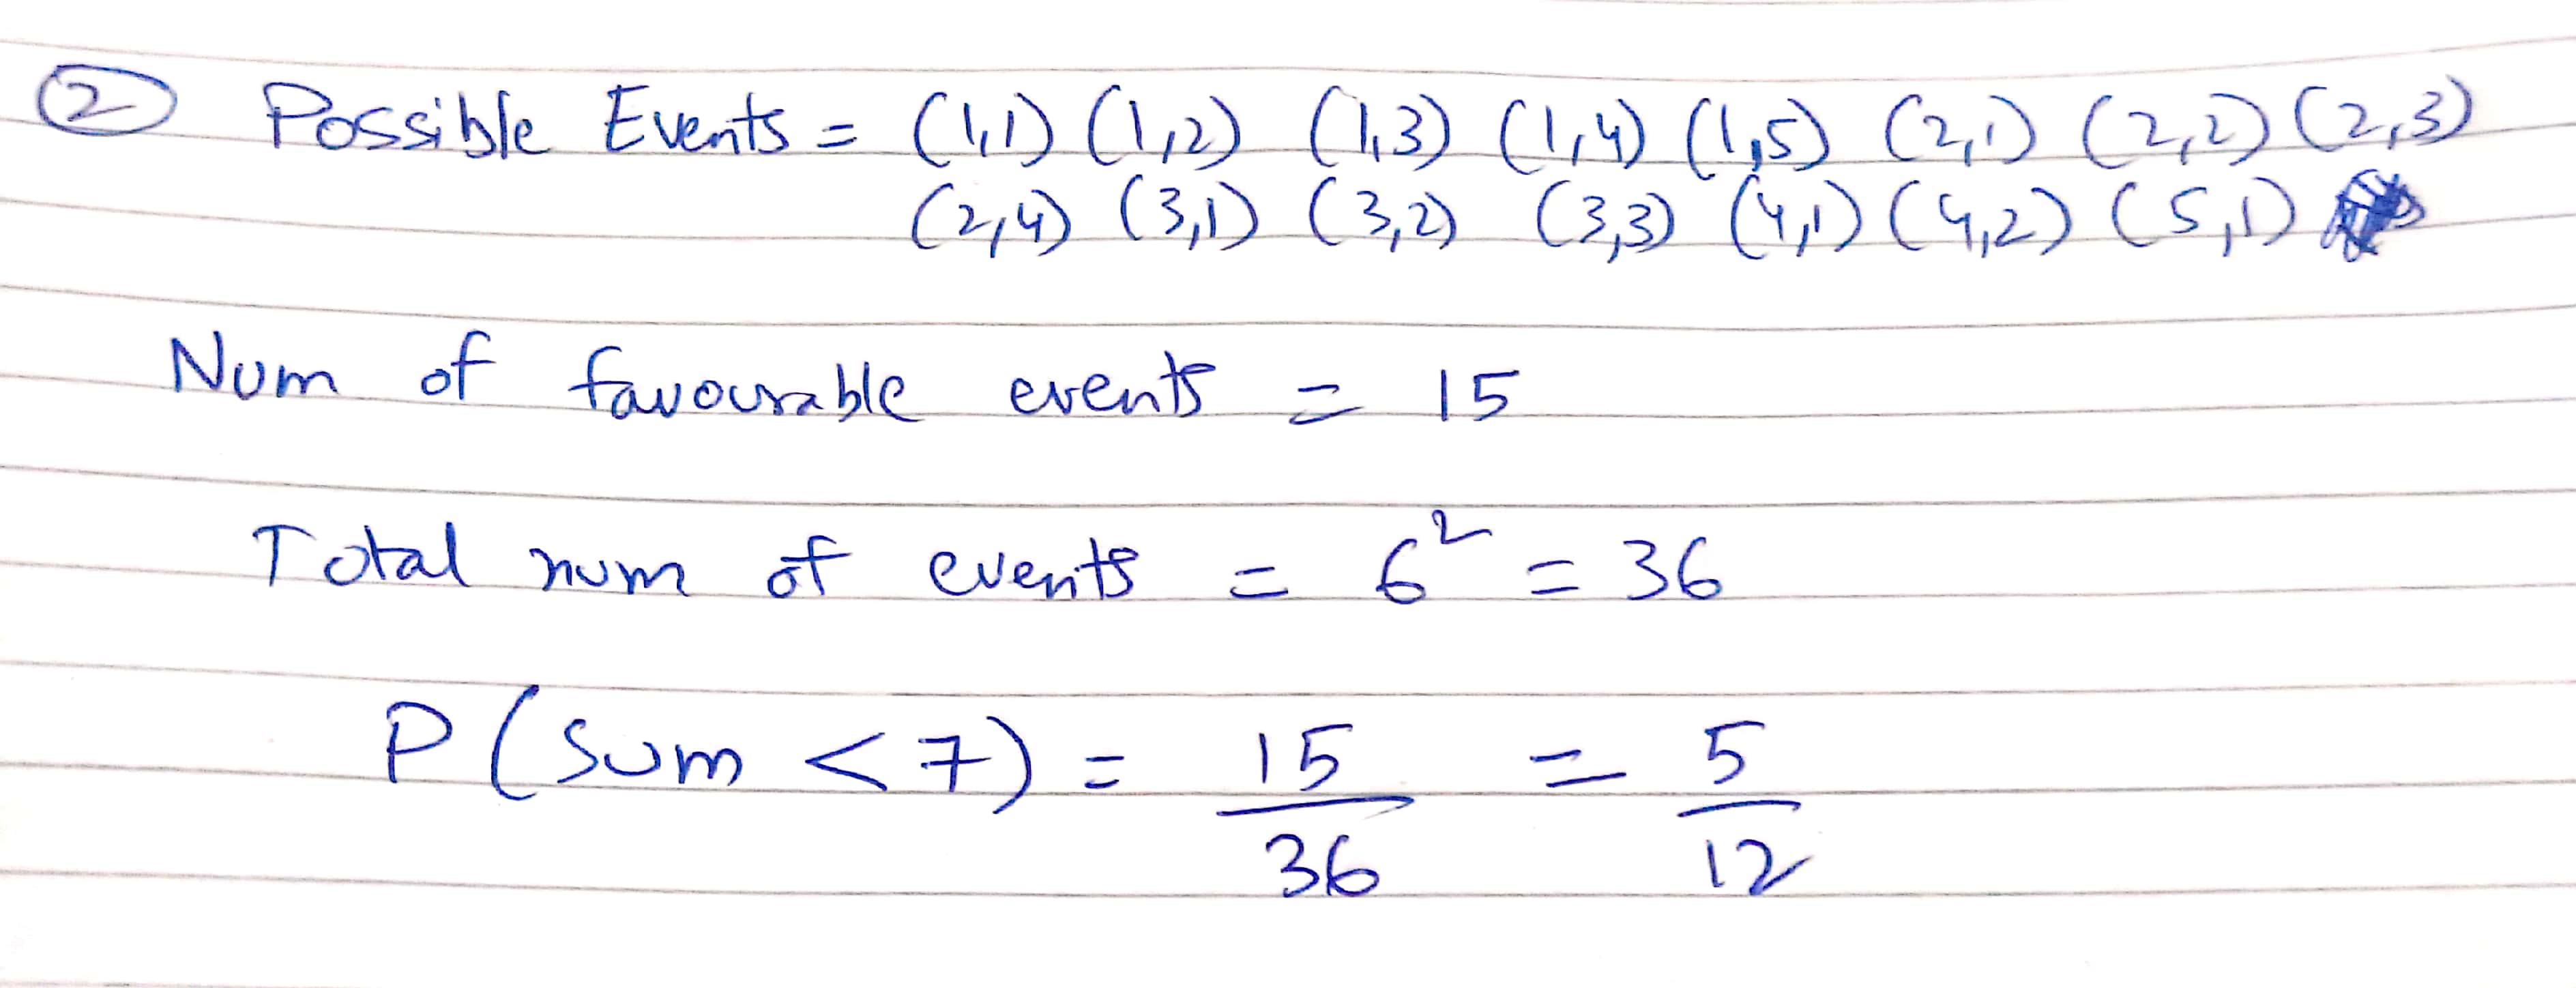 ② Possible Events = (1,1) (1,2) (1,3) (1,4) (1,5) (2,1) (2,2) (2,3)
(2,4) (3,1) (3,2) (3,3) (4,1) (4,2) (5,1)
Num of favourable events = 15
Total num of events = 6² = 36
P(Sum < 7) = 15/36 = 5/12